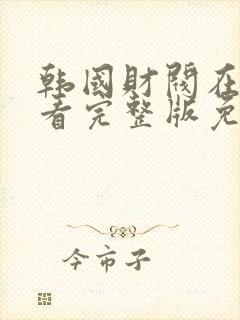 韩國財閥在
看完整版免
今市子